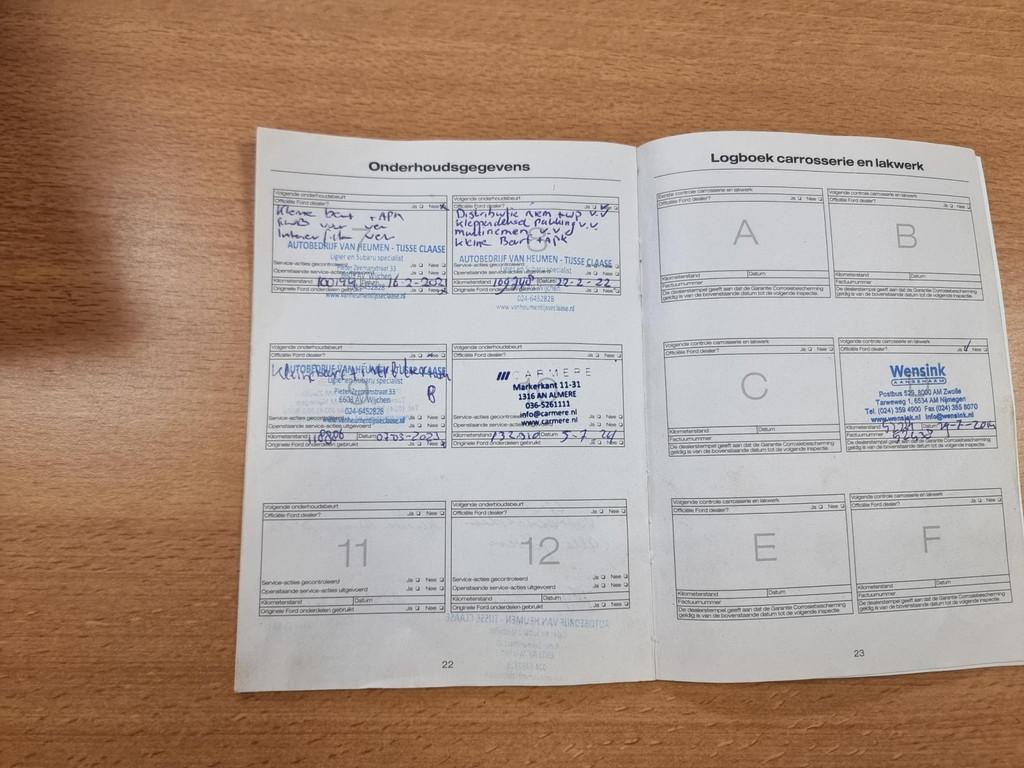 Onderhoudsgegevens
Volgende onderhoudsbeurt
Officiële Ford dealer? Ja Nee
Kleine beurt + APK
Interieur filter
AUTOBEDRIJF VAN HEUMEN - TIJSSE CLAASE
Ligier en Subaru specialist
Pieter Zeemanstraat 33
Wijchen
024-6452828
www.vanheumentijsseclaase.nl
Service-acties gecontroleerd
Openstaande service-acties
Kilometerstand 100194 Datum 16-2-2021
Originele Ford onderdelen gebruikt Ja Nee
Volgende onderhoudsbeurt
Officiële Ford dealer? Ja Nee
Distributie riem + wp v.v.
Kleppendeksel pakking v.v.
multiriemen v.v.
Kleine Beurt + Apk
AUTOBEDRIJF VAN HEUMEN - TIJSSE CLAASE
Ligier en Subaru specialist
024-6452828
www.vanheumentijsseclaase.nl
Service-acties gecontroleerd
Openstaande service-acties
Kilometerstand Datum 22-2-22
Originele Ford onderdelen gebruikt
Volgende onderhoudsbeurt
Officiële Ford dealer? Ja Nee
Kleine beurt +
AUTOBEDRIJF VAN HEUMEN - TIJSSE CLAASE
Ligier en Subaru specialist
Pieter Zeemanstraat 33
6603 AV Wijchen
024-6452828
www.vanheumentijsseclaase.nl
Service-acties gecontroleerd
Openstaande service-acties uitgevoerd
Kilometerstand 118806 Datum 07-03-2023
Originele Ford onderdelen gebruikt Ja Nee
Volgende onderhoudsbeurt
Officiële Ford dealer? Ja Nee
CARMERE
Markerkant 11-31
1316 AN ALMERE
036-5261111
info@carmere.nl
www.carmere.nl
Service-acties gecontroleerd Ja Nee
Openstaande service-acties uitgevoerd Ja Nee
Kilometerstand 132510 Datum 5-7-24
Originele Ford onderdelen gebruikt Ja Nee
Volgende onderhoudsbeurt
Officiële Ford dealer? Ja Nee
11
Service-acties gecontroleerd Ja Nee
Openstaande service-acties uitgevoerd Ja Nee
Kilometerstand Datum
Originele Ford onderdelen gebruikt Ja Nee
Volgende onderhoudsbeurt
Officiële Ford dealer? Ja Nee
12
Service-acties gecontroleerd Ja Nee
Openstaande service-acties uitgevoerd Ja Nee
Kilometerstand Datum
Originele Ford onderdelen gebruikt Ja Nee
22
Logboek carrosserie en lakwerk
Eerste controle carrosserie en lakwerk
Officiële Ford dealer? Ja Nee
A
Kilometerstand Datum
Factuurnummer
De dealerstempel geeft aan dat de Garantie Corrosiebescherming
geldig is van de bovenstaande datum tot de volgende inspectie.
Volgende controle carrosserie en lakwerk
Officiële Ford dealer? Ja Nee
B
Kilometerstand Datum
Factuurnummer
De dealerstempel geeft aan dat de Garantie Corrosiebescherming
geldig is van de bovenstaande datum tot de volgende inspectie.
Volgende controle carrosserie en lakwerk
Officiële Ford dealer? Ja Nee
C
Kilometerstand Datum
Factuurnummer
De dealerstempel geeft aan dat de Garantie Corrosiebescherming
geldig is van de bovenstaande datum tot de volgende inspectie.
Volgende controle carrosserie en lakwerk
Officiële Ford dealer? Ja Nee
Wensink
Postbus 529, 8000 AM Zwolle
Tarweweg 1, 6534 AM Nijmegen
Tel. (024) 359 4900 Fax (024) 355 8070
www.wensink.nl info@wensink.nl
Kilometerstand Datum
Factuurnummer
De dealerstempel geeft aan dat de Garantie Corrosiebescherming
geldig is van de bovenstaande datum tot de volgende inspectie.
Volgende controle carrosserie en lakwerk
Officiële Ford dealer? Ja Nee
E
Kilometerstand Datum
Factuurnummer
De dealerstempel geeft aan dat de Garantie Corrosiebescherming
geldig is van de bovenstaande datum tot de volgende inspectie.
Volgende controle carrosserie en lakwerk
Officiële Ford dealer? Ja Nee
F
Kilometerstand Datum
Factuurnummer
De dealerstempel geeft aan dat de Garantie Corrosiebescherming
geldig is van de bovenstaande datum tot de volgende inspectie.
23